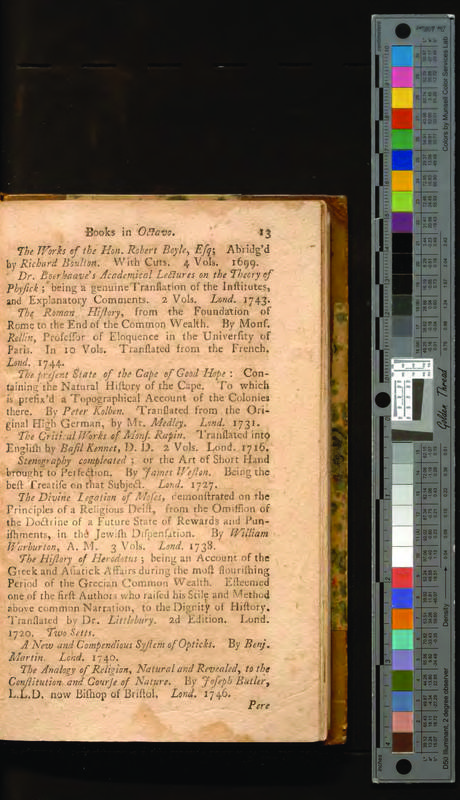 Books in Octavo. 13
The Works of the Hon. Robert Boyle, Esq; Abridg'd
by Richard Boulton. With Cuts. 4 Vols. 1699.
Dr. Boerhaave's Academical Lectures on the Theory of
Physick; being a genuine Translation of the Institutes,
and Explanatory Comments. 2 Vols. Lond. 1743.
The Roman History, from the Foundation of
Rome to the End of the Common Wealth. By Mons.
Rollin, Professor of Eloquence in the University of
Paris. In 10 Vols. Translated from the French.
Lond. 1744.
The present State of the Cape of Good Hope: Con-
taining the Natural History of the Cape. To which
is prefix'd a Topographical Account of the Colonies
there. By Peter Kolben. Translated from the Ori-
ginal High German, by Mr. Medley. Lond. 1731.
The Critical Works of Mons. Rapin. Translated into
English by Basil Kennet, D. D. 2 Vols. Lond. 1716.
Stenography compleated; or the Art of Short Hand
brought to Perfection. By James Weston. Being the
best Treatise on that Subject. Lond. 1727.
The Divine Legation of Moses, demonstrated on the
Principles of a Religious Deist, from the Omission of
the Doctrine of a Future State of Rewards and Pun-
ishments, in the Jewish Dispensation. By William
Warburton, A. M. 3 Vols. Lond. 1738.
The History of Herodotus; being an Account of the
Greek and Asiatick Affairs during the most flourishing
Period of the Grecian Common Wealth. Esteemed
one of the first Authors who raised his Stile and Method
above common Narration, to the Dignity of History.
Translated by Dr. Littlebury. 2d Edition. Lond.
1720. Two Setts.
A New and Compendious System of Opticks. By Benj.
Martin. Lond. 1740.
The Analogy of Religion, Natural and Revealed, to the
Constitution and Course of Nature. By Joseph Butler,
L.L.D. now Bishop of Bristol, Lond. 1746.
Pere
Colors by Munsell Color Services Lab
Golden Thread
Density
D50 Illuminant, 2 degree observer
inches